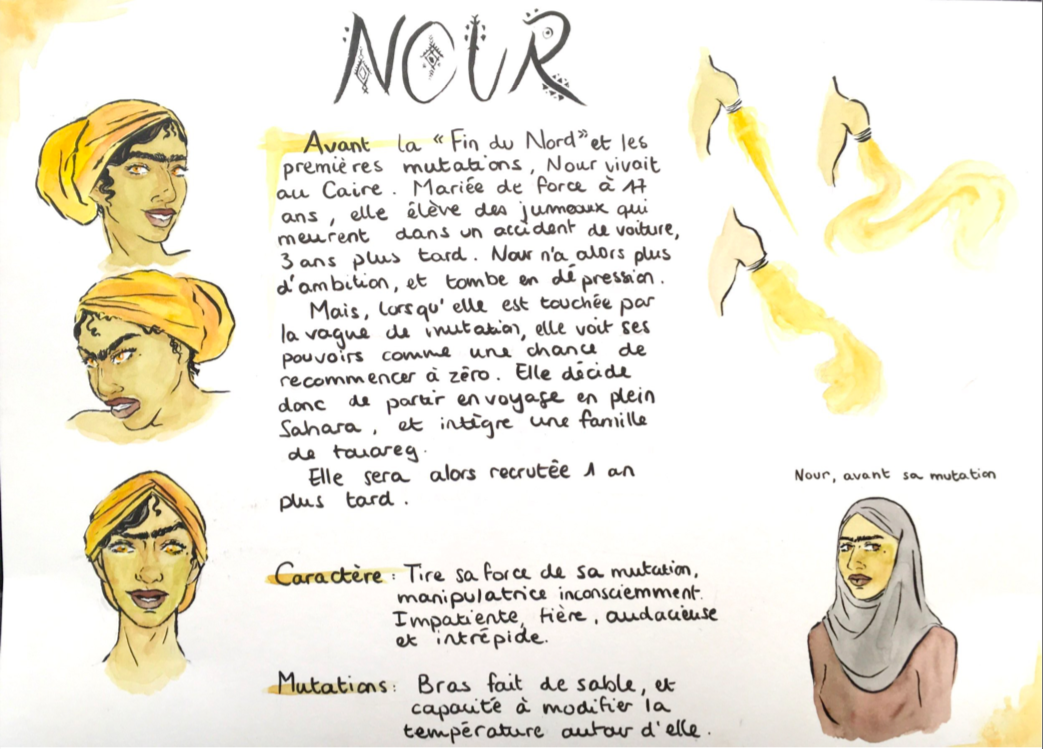 NOUR
Avant la "Fin du Nord" et les
premières mutations, Nour vivait
au Caire. Mariée de force à 17
ans, elle élève des jumeaux qui
meurent dans un accident de voiture,
3 ans plus tard. Nour n'a alors plus
d'ambition, et tombe en dépression.
Mais, lorsqu'elle est touchée par
la vague de mutation, elle voit ses
pouvoirs comme une chance de
recommencer à zéro. Elle décide
donc de partir en voyage en plein
Sahara, et intègre une famille
de touareg.
Elle sera alors recrutée 1 an
plus tard.
Nour, avant sa mutation
Caractère : Tire sa force de sa mutation,
manipulatrice inconsciemment.
Impatiente, fière, audacieuse
et intrépide.
Mutations : Bras fait de sable, et
capacité à modifier la
température autour d'elle.